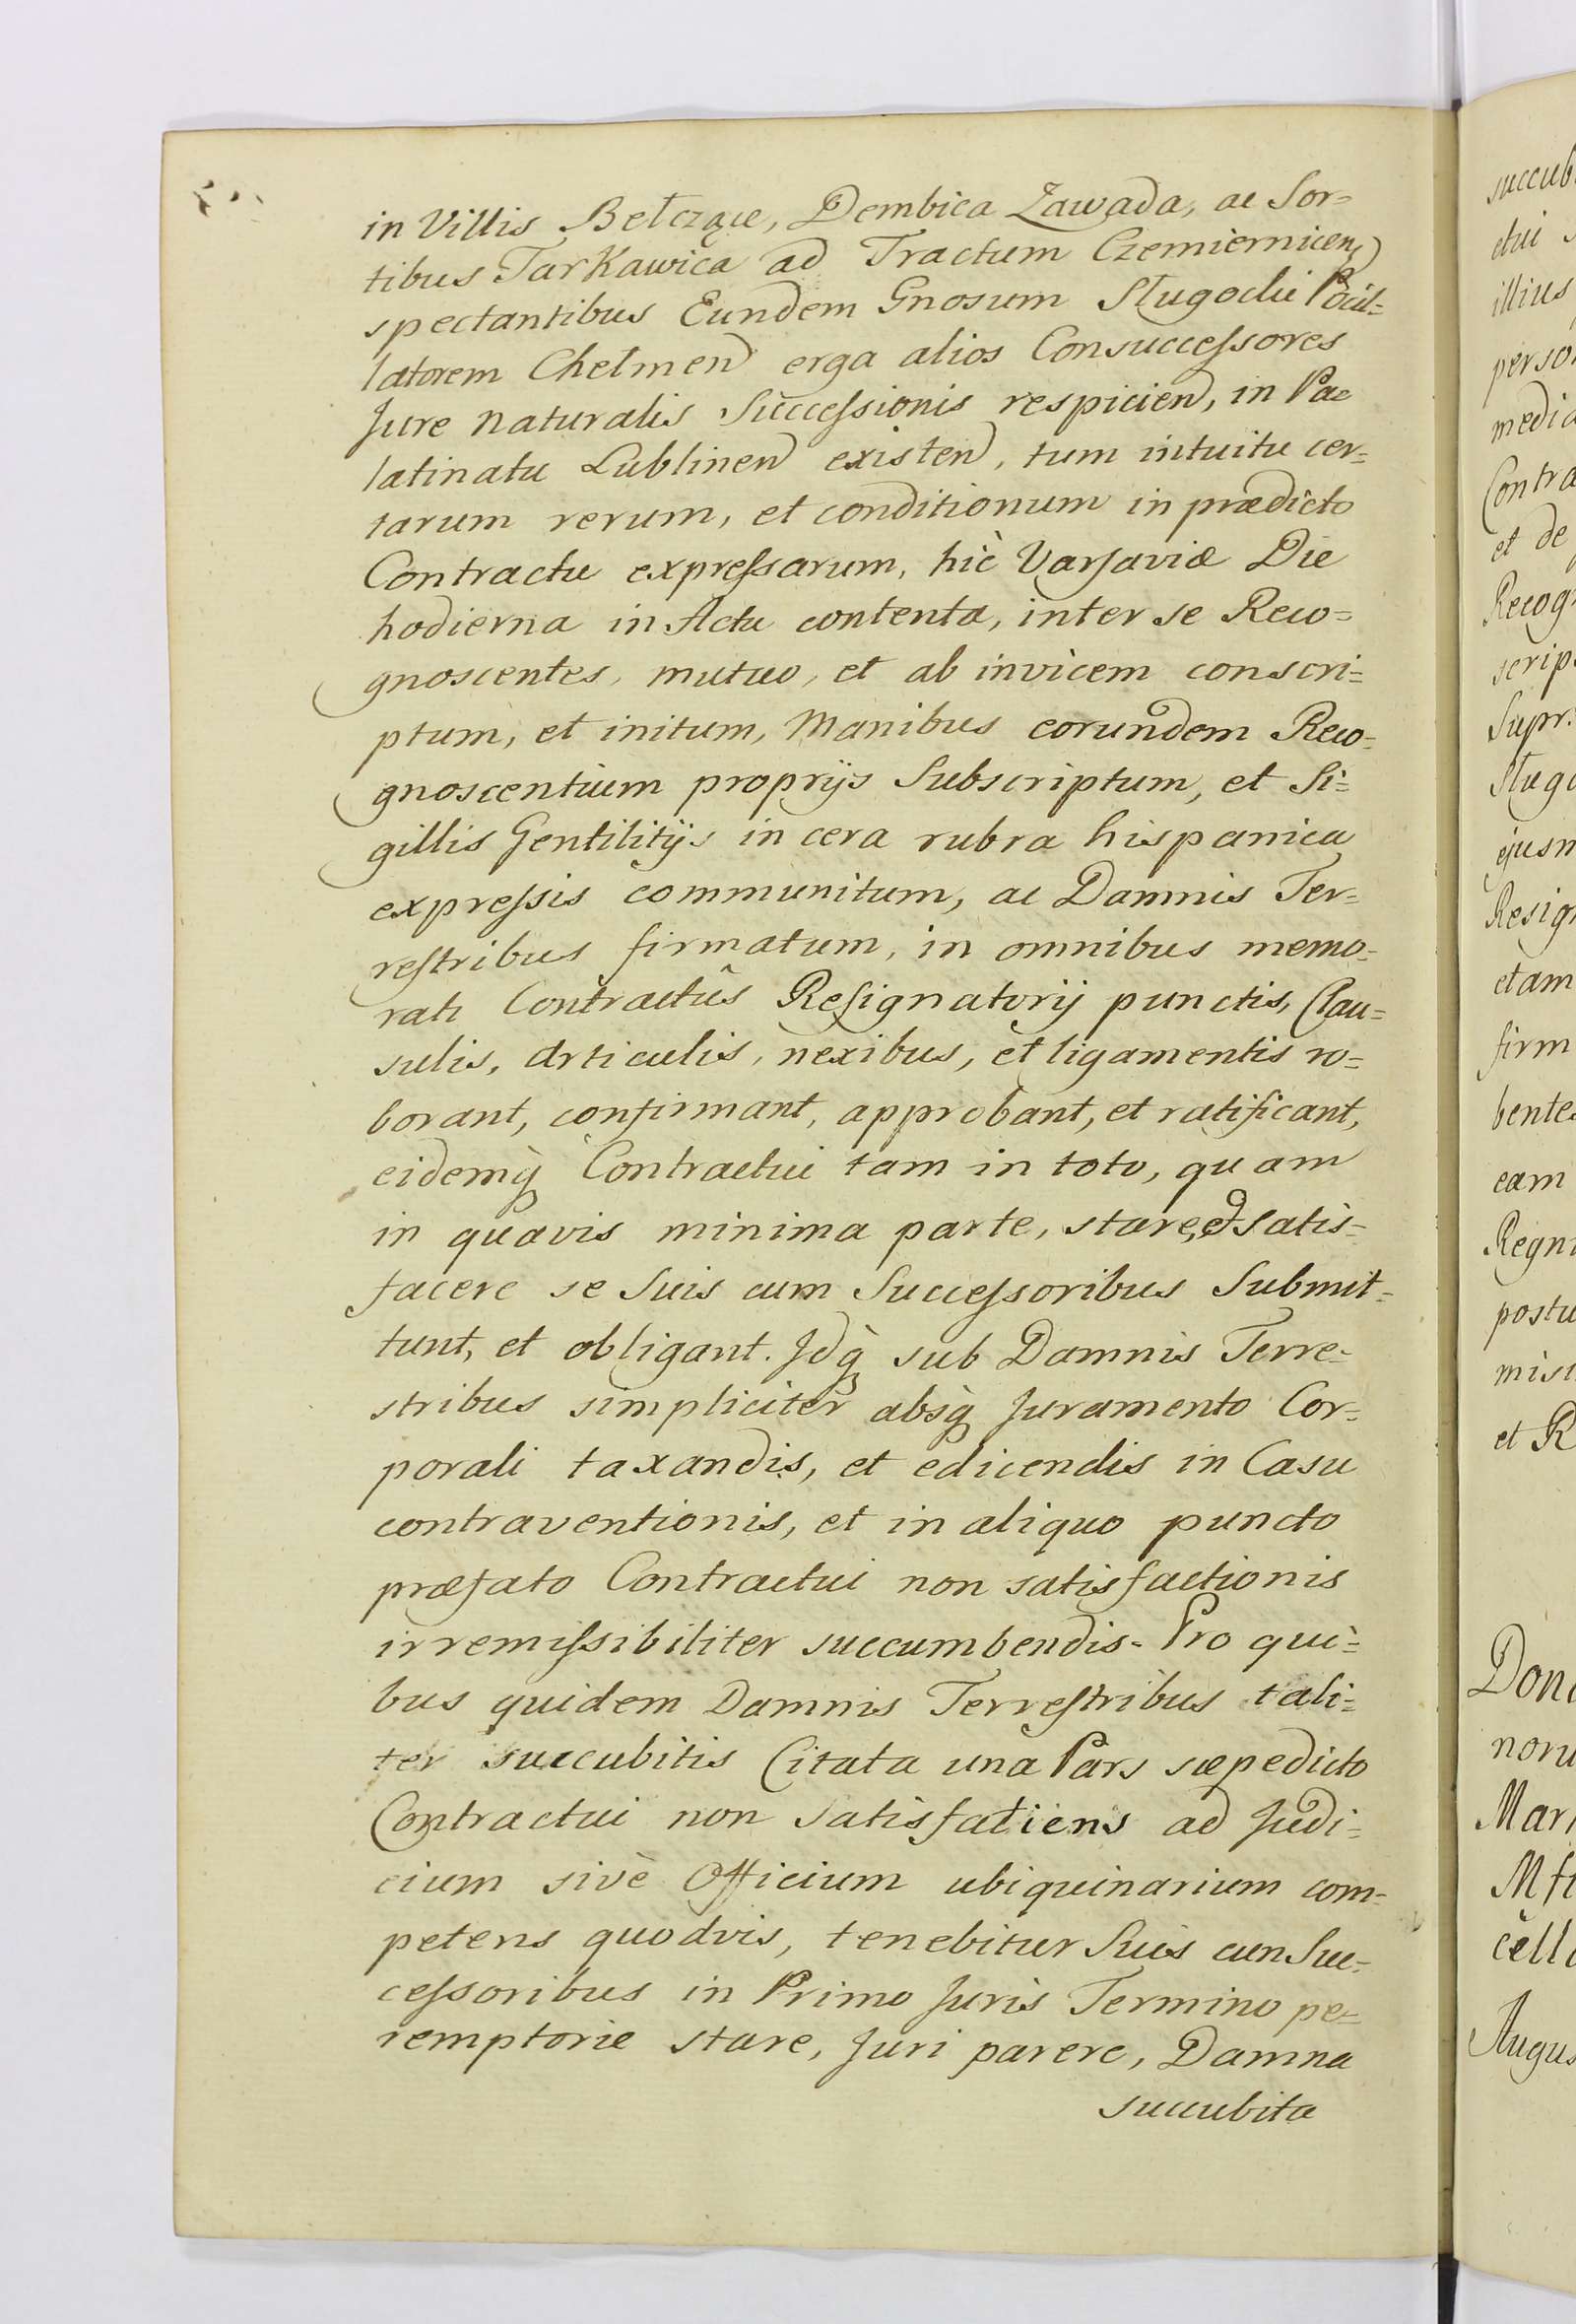 in Villis Bełczące, Dembica Zawada, ac Sor=
tibus Tarkawica ad Tractum Czemiernicen
spectantibus Eundem Gnosum Sługocki Pocil=
latorem Chełmen erga alios Consuccessores
Jure naturalis Successionis respicien, in Pa=
latinatu Lublinen existen, tum intuitu cer=
tarum rerum, et conditionum in prædicto
Contractu expressarum, hìc Varsaviæ Die
hodierna in Actu contenta, inter se Reco=
gnoscentes, mutuo, et ab invicem conscri=
ptum, et initum, Manibus eorundem Reco=
gnoscentium proprijs Subscriptum, et Si=
gillis Gentilitijs in cera rubra hispanica
expressis communitum, ac Damnis Ter=
restribus firmatum, in omnibus memo=
rati Contractûs Resignatorij punctis, Clau=
sulis, Articulis, nexibus, et ligamentis ro=
borant, confirmant, approbant, et ratificant,
eidemq̀ Contractui tam in toto, quam
in quavis minima parte, stare, et satis=
facere se Suis cum Successoribus Submit=
tunt, et obligant. Jdq̀ sub Damnis Terre=
stribus simplicitèr absq̀ Juramento Cor=
porali taxandis, et edicendis in Casu
contraventionis, et in aliquo puncto
præfato Contractui non satisfactionis
irremissibiliter succumbendis. Pro qui=
bus quidem Damnis Terrestribus tali=
ter succubitis Citata una Pars sæpedicto
Contractui non satisfatiens ad Judi=
cium sivè Officium ubiquinarium com=
petens quodvis, tenebitur Suis cum Suc=
cessoribus in Primo Juris Termino pe=
remptorie stare, Juri parere, Damna
succubita
succub
ctui
illius
perso
media
Contra
et de
Recog
scrip
Supr
Sługo
ejusm
Resig
etam
firm
bente
eam
Regni
postu
misi
et R
Don
noru
Mar
Mf
cell
Augus